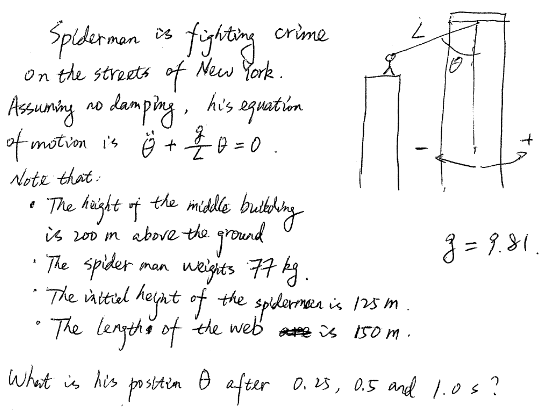 Spiderman is fighting crime
on the streets of New York.
Assuming no damping, his equation
of motion is θ̈ + g/L θ = 0.
Note that:
• The height of the middle building
is 200 m above the ground
• The spider man weights 77 kg.
• The initial height of the spiderman is 125 m.
• The length of the web is 150 m.
What is his position θ after 0.25, 0.5 and 1.0 s?
L
θ
- +
g = 9.81.